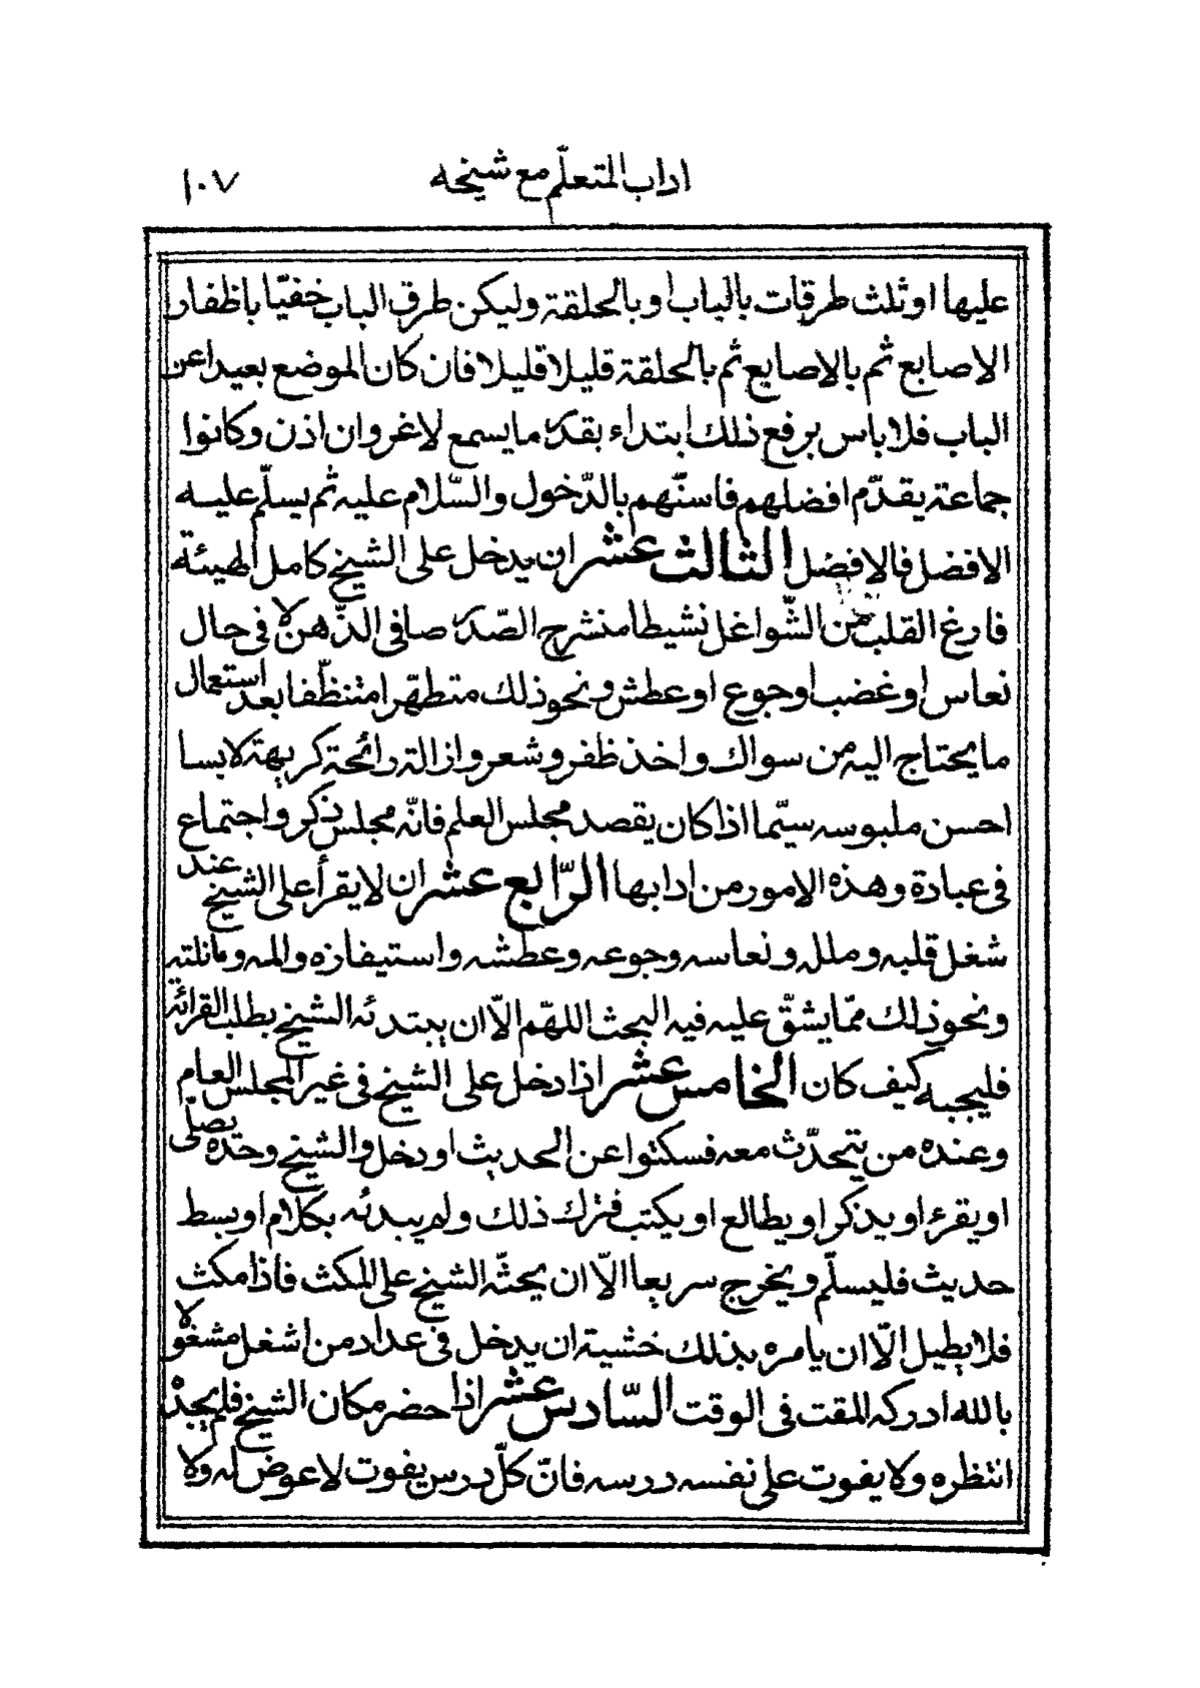 اداب المتعلّم مع شيخه ١٠٧
عليها او ثلث طرقات بالباب او بالحلقة وليكن طرق الباب خفيّا باظفار
الاصابع ثم بالاصابع ثم بالحلقة قليلا قليلا فان كان الموضع بعيدا عن
الباب فلا باس برفع ذلك ابتداء بقدر ما يسمع لا غير وان اذن وكانوا
جماعة يقدّم افضلهم فاسنّهم بالدّخول والسّلام عليه ثم يسلّم عليه
الافضل فالافضل الثالث عشر ان يدخل على الشيخ كامل الهيئة
فارغ القلب من الشّواغل نشيطا منشرح الصّدر صافى الذّهن لا فى حال
نعاس او غضب او جوع او عطش ونحو ذلك متطهّرا متنظّفا بعد استعمال
ما يحتاج اليه من سواك واخذ ظفر وشعر وازالة رائحة كريهة لابسا
احسن ملبوسه سيّما اذا كان يقصد مجلس العلم فانّه مجلس ذكر واجتماع
فى عبادة وهذه الامور من ادابها الرّابع عشر ان لا يقرأ على الشيخ عند
شغل قلبه وملله ونعاسه وجوعه وعطشه واستيفازه والمه وقائلته
ونحو ذلك ممّا يشقّ عليه فيه البحث اللهمّ الاّ ان يبتدئه الشيخ بطلب القرائة
فليجبه كيف كان الخامس عشر اذا دخل على الشيخ فى غير المجلس العام
وعنده من يتحدّث معه فسكتوا عن الحديث او دخل والشيخ وحده يصلّى
او يقرء او يذكر او يطالع او يكتب فترك ذلك ولم يبدئه بكلام او بسط
حديث فليسلّم ويخرج سريعا الاّ ان يحثّه الشيخ على المكث فاذا مكث
فلا يطيل الاّ ان يامره بذلك خشية ان يدخل فى عداد من اشغل مشغولا
بالله ادركه المقت فى الوقت السّادس عشر اذا حضر مكان الشيخ فلم يجده
انتظره ولا يفوت على نفسه درسه فانّ كلّ درس يفوت لا عوض له ولا